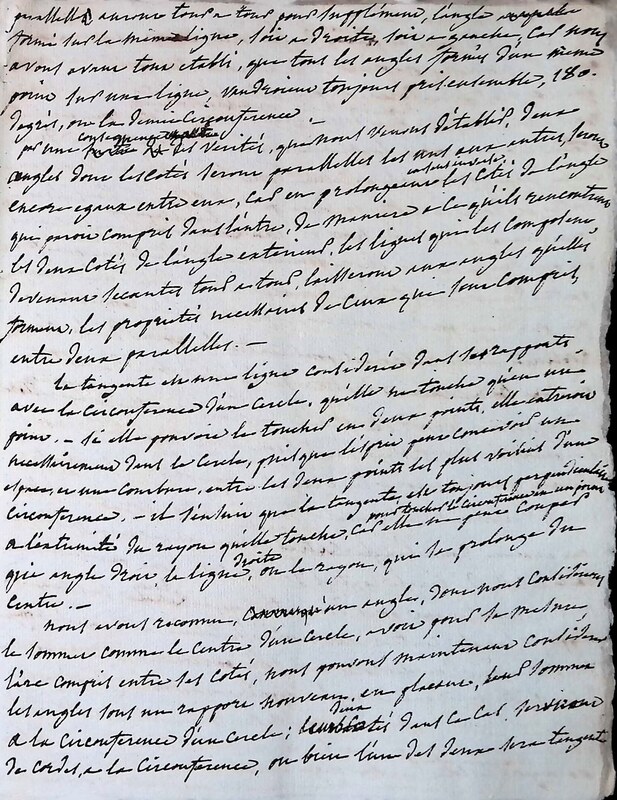 parallelles auront tour a tour pour supplément, l'angle
formé sur la même ligne, soit a droite, soit a gauche, car nous
avons avant tout etabli, que tous les angles formés d'un même
point sur une ligne, vaudroient toujours pris ensemble, 180.
degrés, ou la demie circonférence. —
par une consequence des verités, que nous venons d'établir, deux
angles dont les cotés seront parallelles les uns aux autres, seront
encore egaux entre eux, car en prolongeant les cotés de l'angle
qui paroit compris dans l'autre, de maniere a ce qu'ils rencontrent
les deux cotés de l'angle exterieur, les lignes qui les composent
devenant secantes tour a tour, laisseront aux angles qu'elles
forment, les proprietés necessaires de ceux qui sont compris,
entre deux parallelles. —
la tangente est une ligne considerée dans ses rapports
avec la circonference d'un cercle, qu'elle ne touche qu'en un
point. — si elle pouvoit le toucher en deux points, elle entreroit
necessairement dans le cercle, puisque l'esprit peut concevoir un
espace, et une courbure, entre les deux points les plus voisins d'une
circonference. — il s'ensuit que la tangente, est toujours perpendiculaire
a l'extrémité du rayon qu'elle touche, car elle ne peut couper
pour toucher la circonference en un point
qu'a angle droit la ligne droite, ou le rayon, qui se prolonge du
centre. —
nous avons reconnu, qu'un angle, dont nous considerons
le sommet comme le centre d'un cercle, avoit pour sa mesure
l'arc compris entre ses cotés, nous pouvons maintenant considerer
les angles sous un rapport nouveau, en plaçant, leur sommet
a la circonference d'un cercle; deux cotés dans ce cas serviront
de cordes, a la circonference, ou bien l'un des deux sera tangente